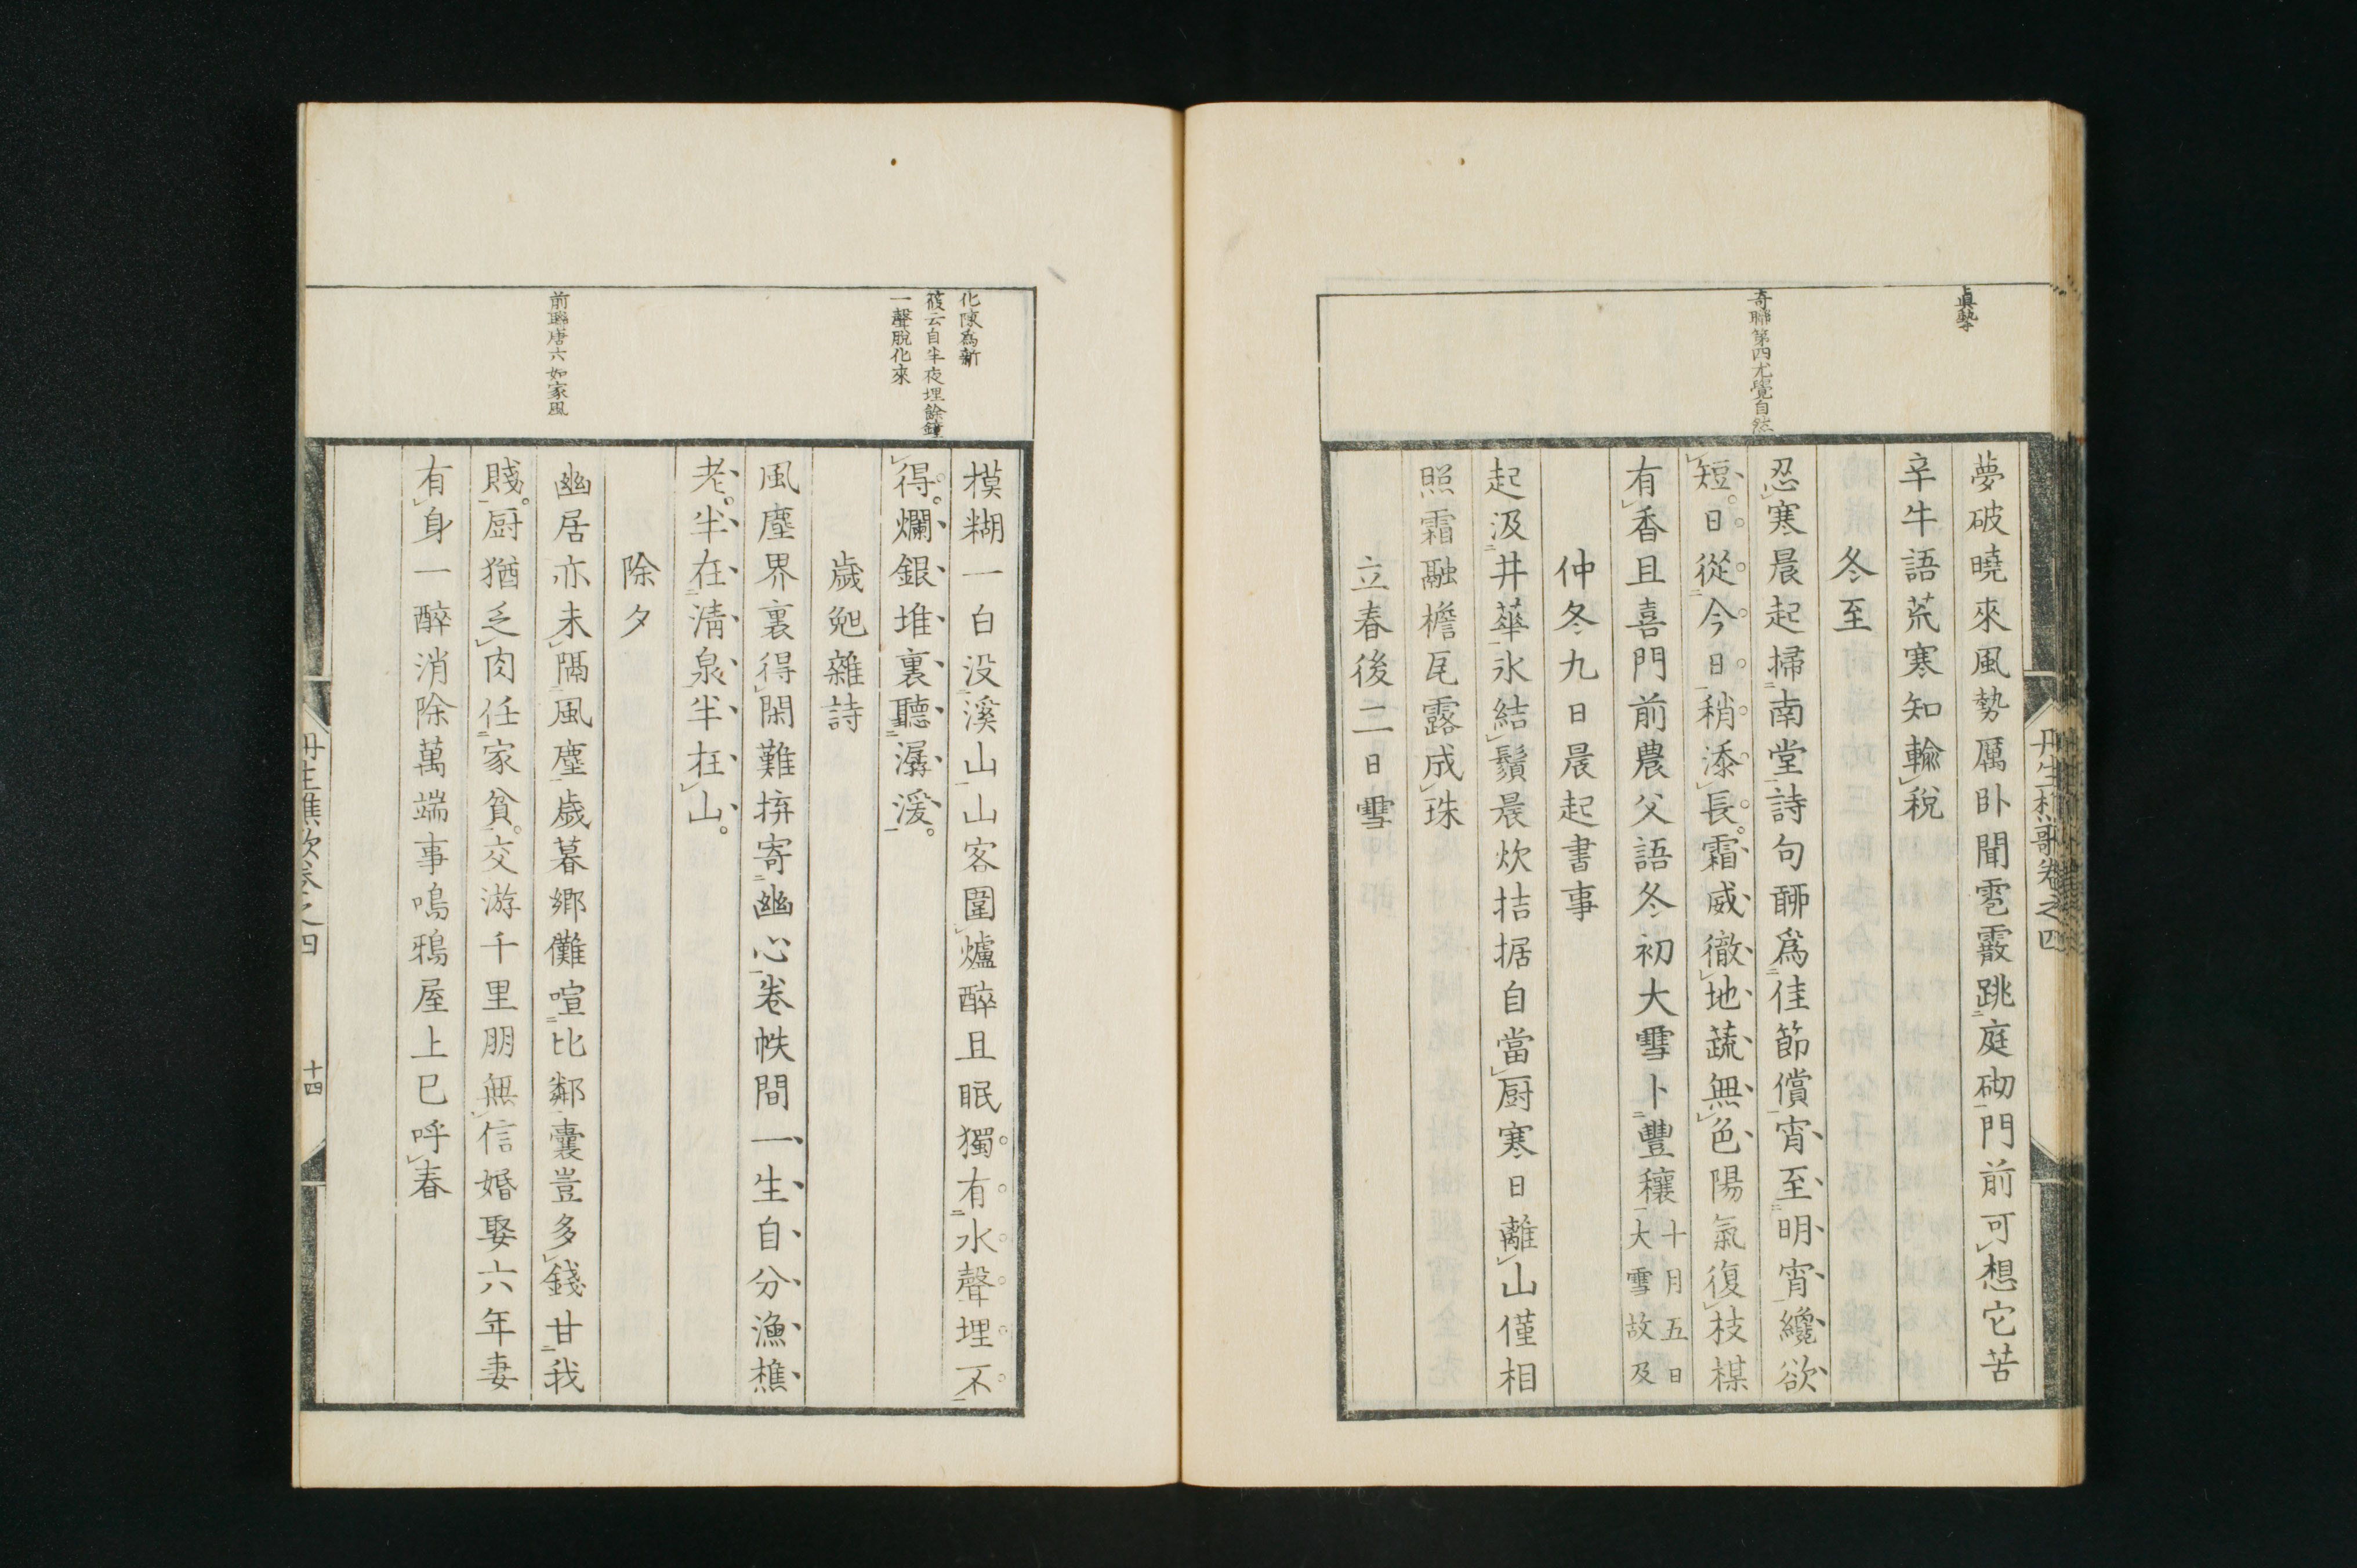 眞勢
奇聯第四尤覺自然
夢破曉來風勢厲卧聞雹霰跳庭砌門前可想它苦
辛牛語荒寒知輸稅
冬至
忍寒晨起掃南堂詩句聊爲佳節償宵至明宵纔欲
短日從今日稍添長霜威徹地蔬無色陽氣復枝楳
有香且喜門前農父語冬初大雪卜豐穰十月五日
大雪故及
仲冬九日晨起書事
起汲井華氷結鬚晨炊拮据自當厨寒日離山僅相
照霜融檐瓦露成珠
立春後二日雪
丹生樵歌卷之四
化陳爲新
彼云自半夜埋餘鐘
一聲脫化來
前聯唐六如家風
模糊一白没溪山山客圍爐醉且眠獨有水聲埋不
得爛銀堆裏聽潺湲
歲晚雜詩
風塵界裏得閑難捹寄幽心卷帙間一生自分漁樵
老半在淸泉半在山
除夕
幽居亦未隔風塵歲暮鄉儺喧比鄰囊豈多錢甘我
賤厨猶乏肉任家貧交游千里朋無信婚娶六年妻
有身一醉消除萬端事鳴鴉屋上已呼春
丹生樵歌卷之四
十四